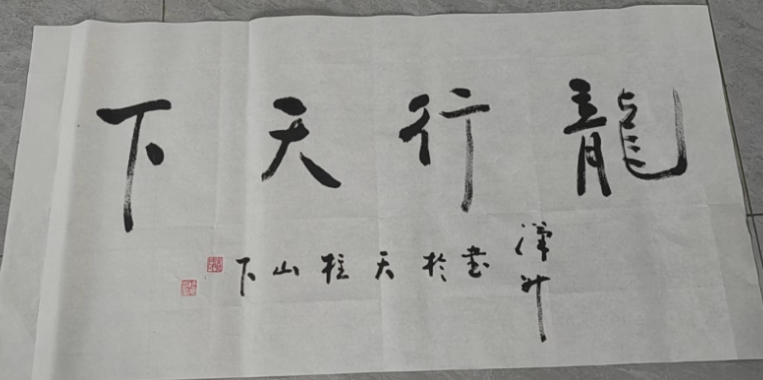 龍行天下
書於天柱山下